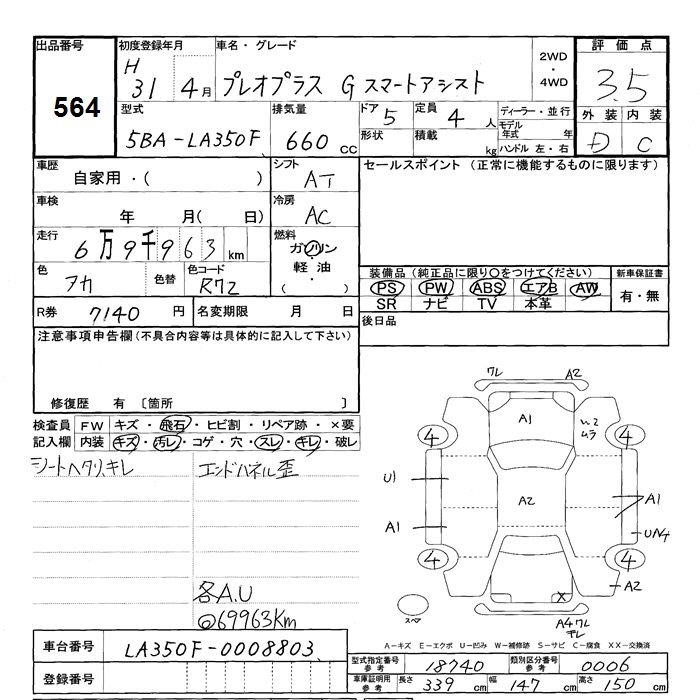 出品番号 564
初度登録年月 H 31 4月
車名・グレード プレオプラス G スマートアシスト
2WD・4WD
評価点 3.5
型式 5BA-LA350F
排気量 660 cc
ドア 5 定員 4 人
形状 積載 kg
ディーラー・並行
モデル年式 年
ハンドル 左・右
外装 内装
D C
車歴 自家用・( )
シフト AT
セールスポイント (正常に機能するものに限ります)
車検 年 月( 日)
冷房 AC
走行 6万9千963 km
燃料 ガソリン
軽油・
( ・ )
色 アカ 色替 色コード R72
装備品 (純正品に限り○をつけてください)
PS PW ABS エアB AW
SR ナビ TV 本革
新車保証書
有・無
R券 7140 円 名変期限 月 日
後日品
注意事項申告欄 (不具合内容等は具体的に記入して下さい)
修復歴 有 〔箇所 〕
検査員 FW キズ・飛石・ヒビ割・リペア跡・×要
記入欄 内装 キズ・汚レ・コゲ・穴・スレ・キレ・破レ
シートヘタリ、キレ
エンドパネル歪
各A.U
◎69963Km
ワレ A2
A1
ムラ
4 4
U1
A2
A1
A1
4 4
A2
X
スペア
A4ワレ
A-キズ E-エクボ U-凹み W-補修跡 S-サビ C-腐食 XX-交換済
車台番号 LA350F-0008803
型式指定番号 参考 18740 類別区分番号 参考 0006
登録番号
車庫証明用 参考 長さ 339 cm 幅 147 cm 高さ 150 cm